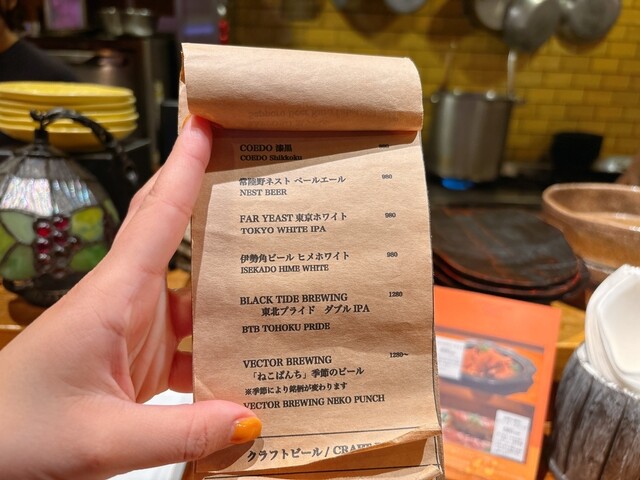 COEDO 漆黒
COEDO Shikkoku
常陸野ネスト ペールエール 980
NEST BEER
FAR YEAST 東京ホワイト 980
TOKYO WHITE IPA
伊勢角ビール ヒメホワイト 980
ISEKADO HIME WHITE
BLACK TIDE BREWING 1280
東北プライド ダブル IPA
BTB TOHOKU PRIDE
VECTOR BREWING 1280~
「ねこぱんち」季節のビール
※季節により銘柄が変わります
VECTOR BREWING NEKO PUNCH
クラフトビール / CRAFT